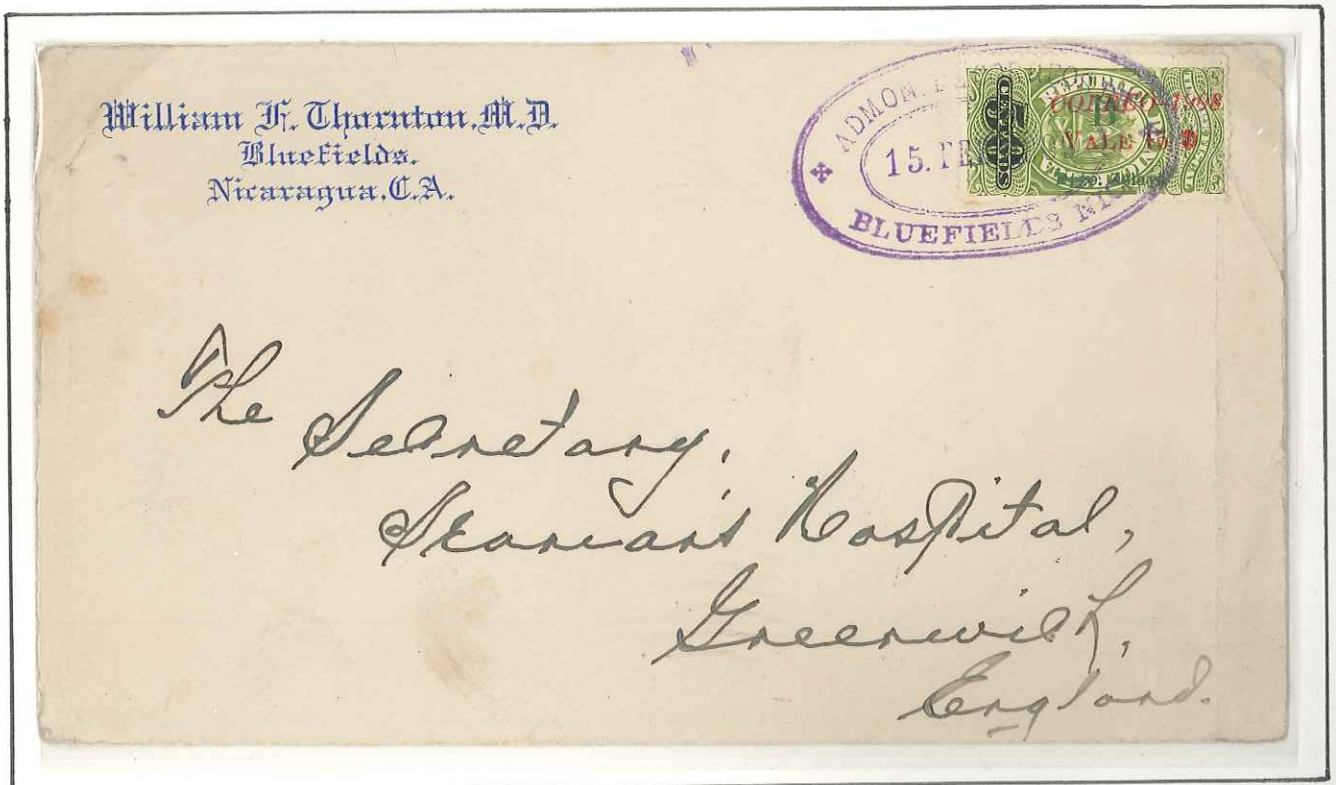 William F. Thornton, M.D.
Bluefields.
Nicaragua. C.A.
ADMON.
15. FE
BLUEFIELDS NIC
50
CENTAVOS
CORREO-1908
B
VALE
The
Secretary,
Seaman's Hospital,
Greenwich,
England.